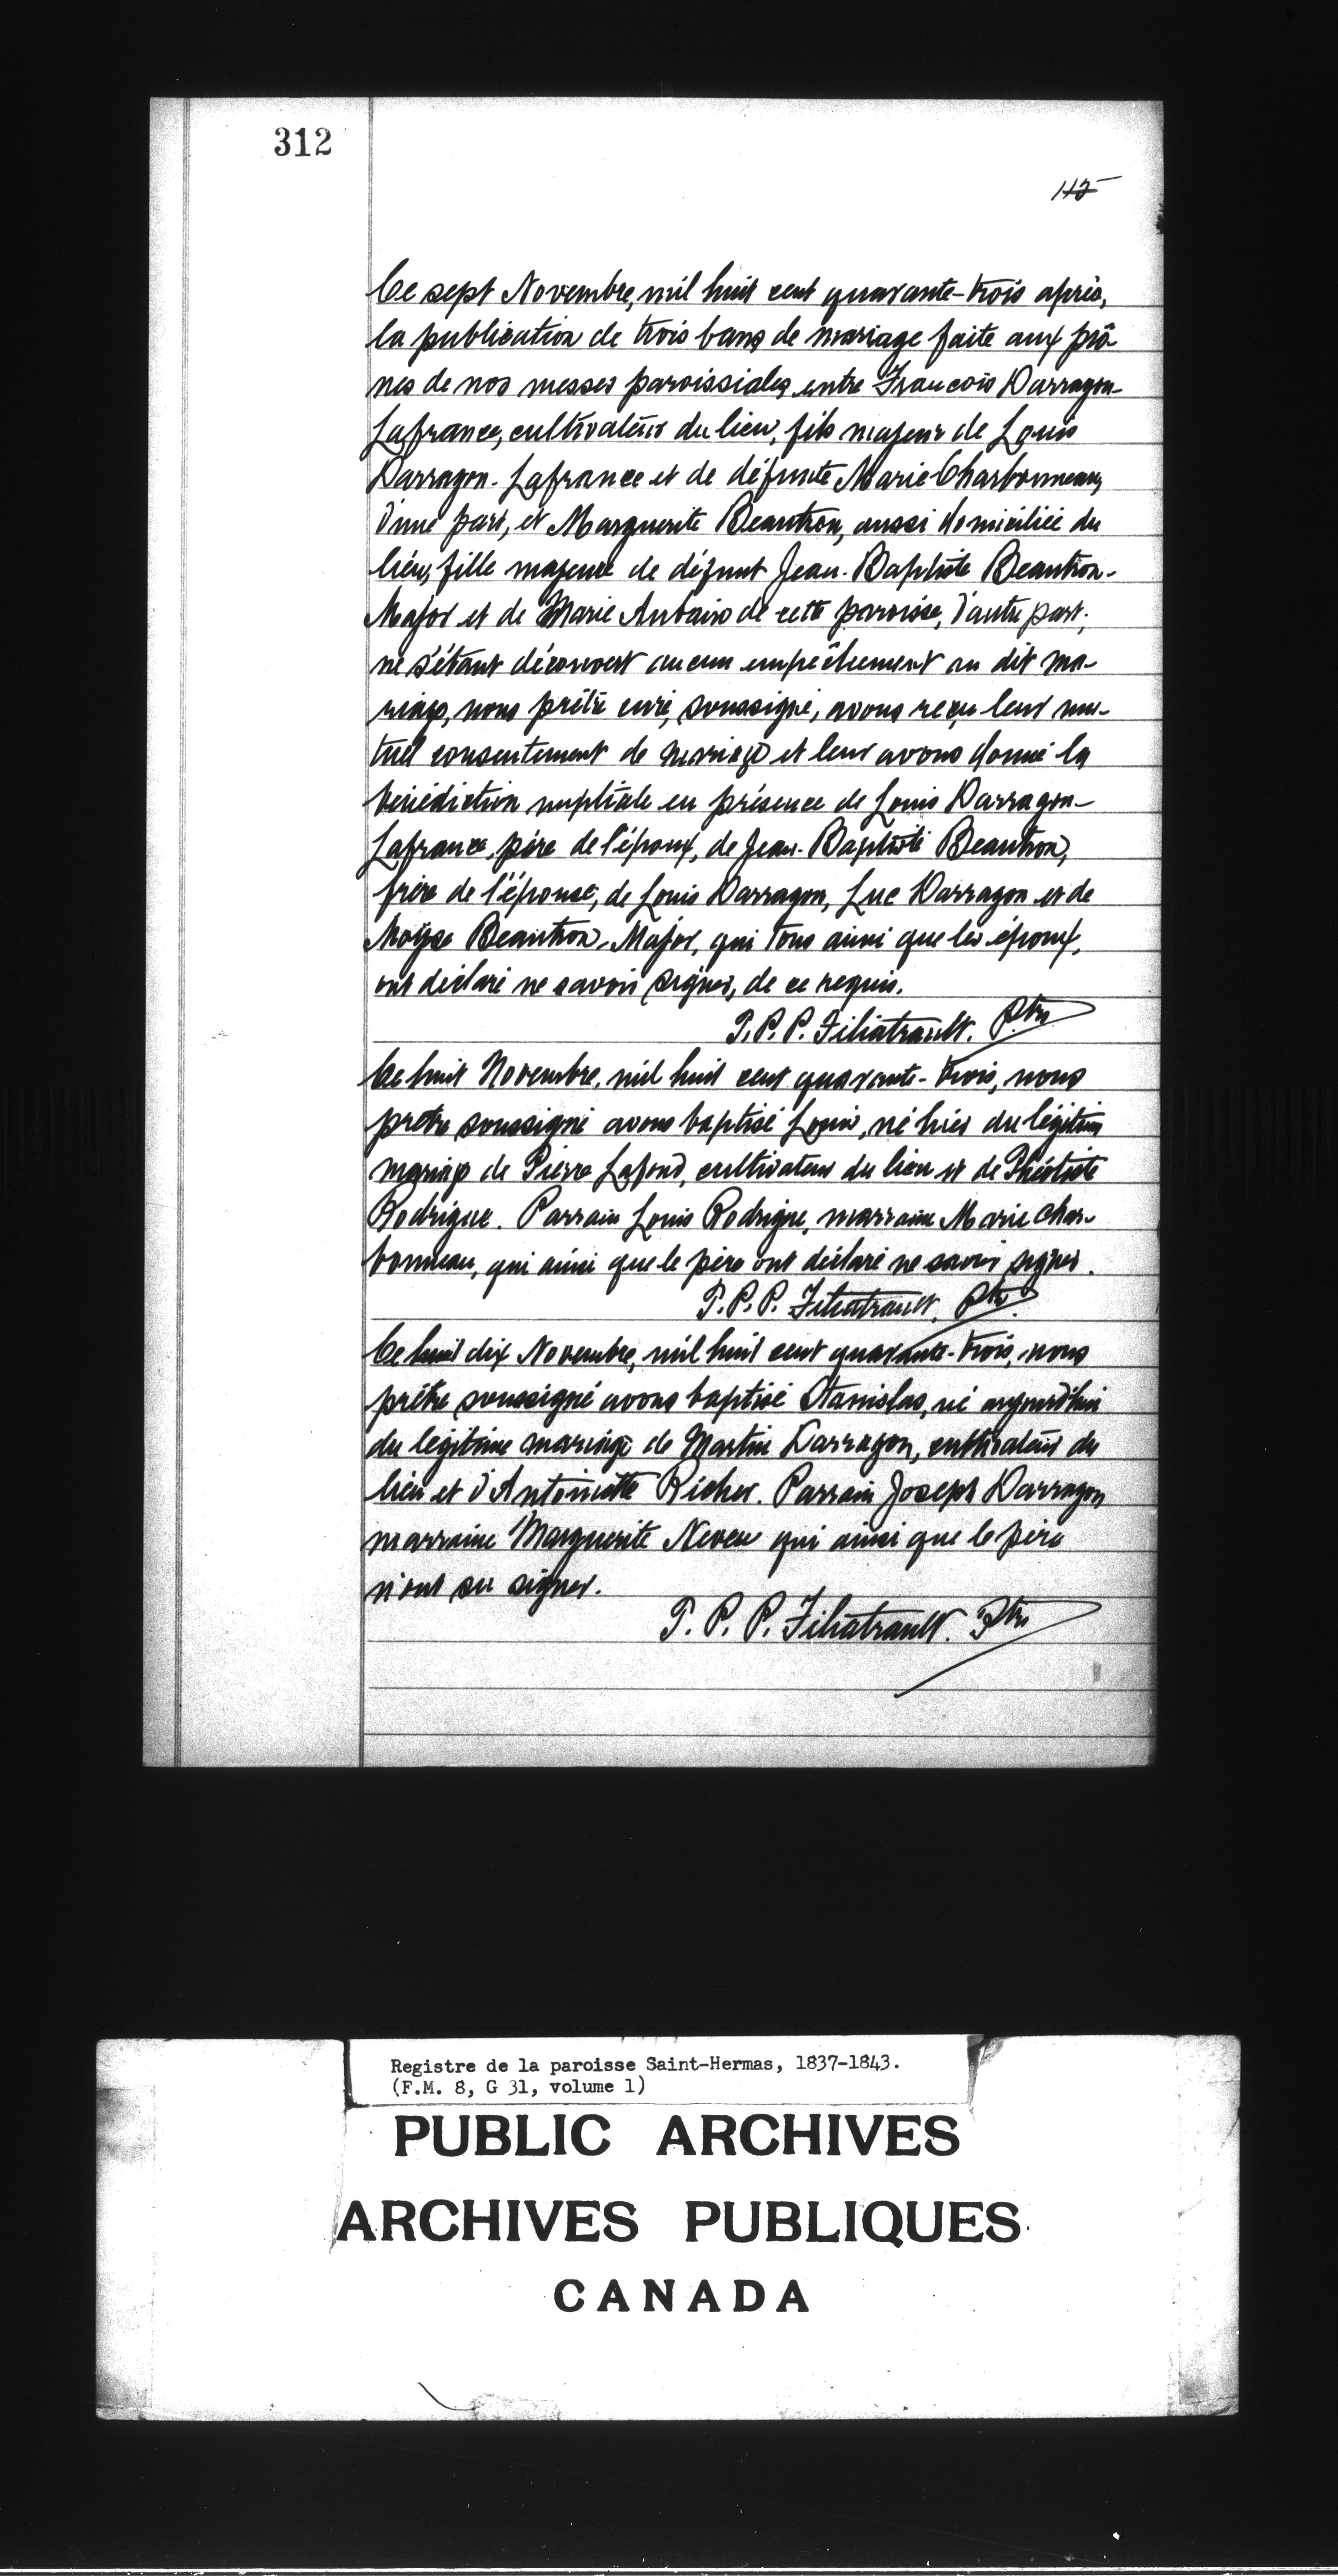 312
115
Ce sept Novembre, mil huit cent quarante-trois après,
la publication de trois bans de mariage faite aux prô-
nes de nos messes paroissiales entre Francois Darragon-
Lafrance, cultivateur du lieu, fils majeur de Louis
Darragon-Lafrance et de défunte Marie Charbonneau,
d'une part, et Marguerite Beautron, aussi domiciliée du
lieu, fille majeure de défunt Jean-Baptiste Beautron-
Major et de Marie Aubair de cette paroisse, d'autre part;
ne s'étant découvert aucun empêchement au dit ma-
riage, nous prêtre curé, soussigné, avons reçu leur mu-
tuel consentement de mariage et leur avons donné la
bénédiction nuptiale en présence de Louis Darragon-
Lafrance, père de l'époux, de Jean-Baptiste Beautron,
frère de l'épouse, de Louis Darragon, Luc Darragon et de
Moÿse Beautron-Major, qui tous ainsi que les époux,
ont déclaré ne savoir signer, de ce requis.
T. P. P. Filiatrault. Ptre
Ce huit Novembre, mil huit cent quarante-trois, nous
prêtre soussigné avons baptisé Louis, né hier du légitime
mariage de Pierre Lafond, cultivateur du lieu et de Théotiste
Rodrigue. Parrain Louis Rodrigue, marraine Marie Char-
bonneau, qui ainsi que le père ont déclaré ne savoir signer.
T. P. P. Filiatrault, Ptre
Ce huit dix Novembre, mil huit cent quarante-trois, nous
prêtre soussigné avons baptisé Stanislas, né aujourd'hui
du légitime mariage de Martin Darragon, cultivateur du
lieu et d'Antoinette Richer. Parrain Joseph Darragon
marraine Marguerite Neveu qui ainsi que le père
n'ont su signer.
T. P. P. Filiatrault. Ptre
Registre de la paroisse Saint-Hermas, 1837-1843.
(F.M. 8, G 31, volume 1)
PUBLIC ARCHIVES
ARCHIVES PUBLIQUES
CANADA